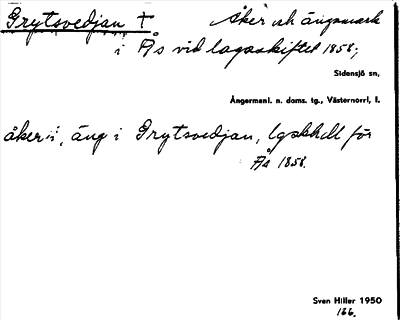 Grytsvedjan + Åker och ängsmark
i Ås vid lagaskiftet 1858;
Sidensjö sn,
Ångermanl. n. doms. tg., Västernorrl, l.
åker i, äng i Grytsvedjan, lgskhdl för
Ås 1858.
Sven Hiller 1950
166.